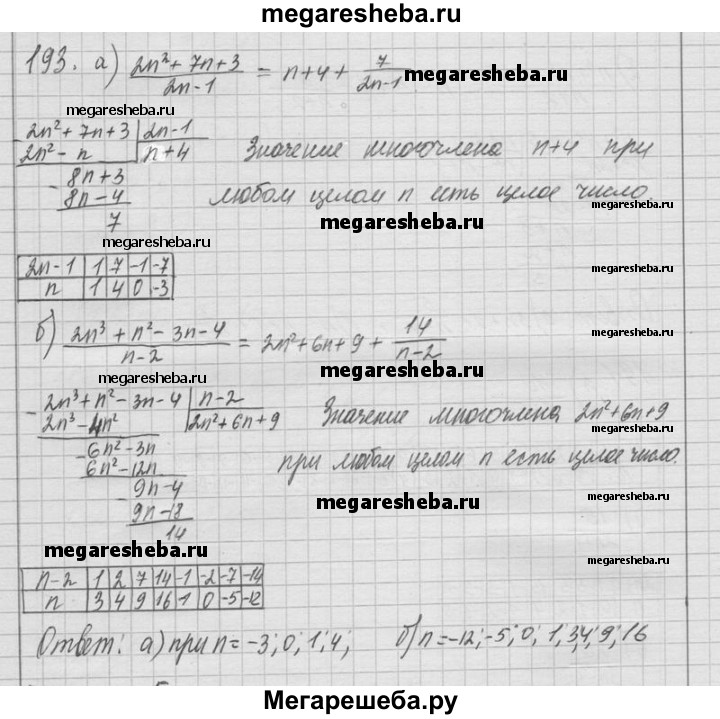 megaresheba.ru
193. а) (2n² + 7n + 3)/(2n-1) = n+4 + 7/(2n-1) megaresheba.ru
megaresheba.ru megaresheba.ru
- 2n² + 7n + 3 | 2n-1
2n² - n | n+4 Значение многочлена n+4 при
- 8n+3
8n-4 любом целом n есть целое число.
7 megaresheba.ru megaresheba.ru
megaresheba.ru
2n-1 | 1 | 7 | -1 | -7 megaresheba.ru
n | 1 | 4 | 0 | -3
б) (2n³ + n² - 3n - 4)/(n-2) = 2n² + 6n + 9 + 14/(n-2)
megaresheba.ru megaresheba.ru
- 2n³ + n² - 3n - 4 | n-2
2n³ - 4n² | 2n² + 6n + 9 Значение многочлена 2n² + 6n + 9
megaresheba.ru
- 6n² - 3n
6n² - 12n при любом целом n есть целое число.
- 9n-4
9n-18 megaresheba.ru megaresheba.ru
14
megaresheba.ru megaresheba.ru
n-2 | 1 | 2 | 7 | 14 | -1 | -2 | -7 | -14
n | 3 | 4 | 9 | 16 | 1 | 0 | -5 | -12
Ответ: а) при n = -3; 0; 1; 4; б) n = -12; -5; 0; 1; 3; 4; 9; 16
megaresheba.ru megaresheba.ru
Мегарешеба.ру